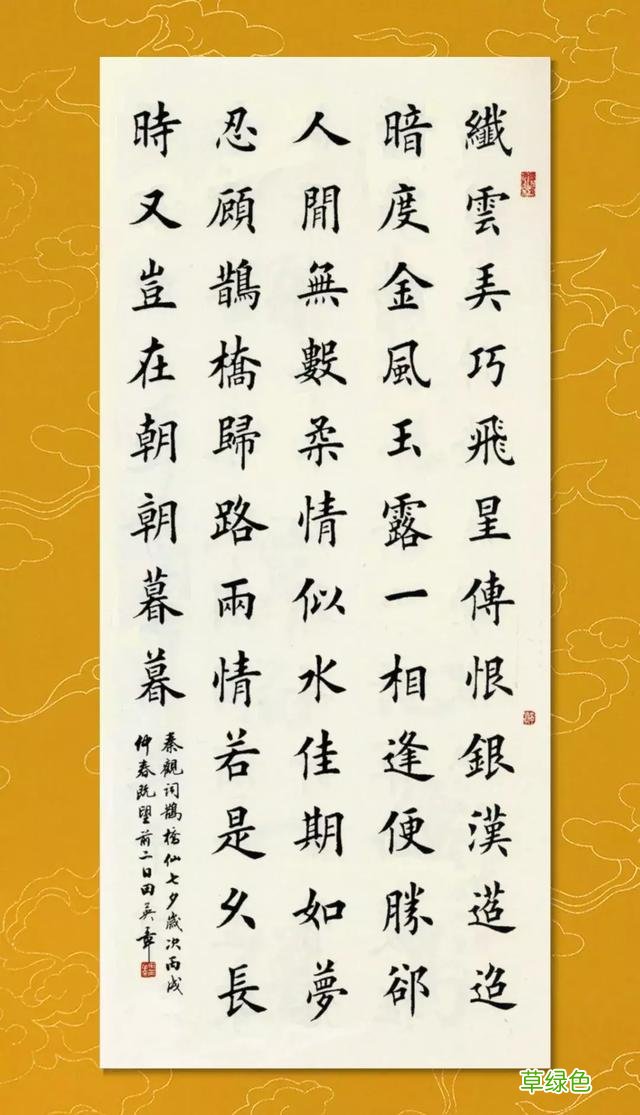 纖雲弄巧飛星傳恨銀漢迢迢
暗度金風玉露一相逢便勝卻
人間無數柔情似水佳期如夢
忍顧鵲橋歸路兩情若是久長
時又豈在朝朝暮暮
秦觀詞鵲橋仙七夕歲次丙戌
仲春既望前二日田英章
草绿色